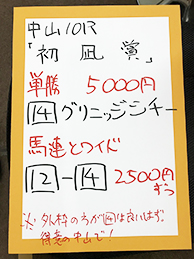 中山10R
「初凪賞」
単勝 5000円
14 グリニッジシチー
馬連とワイド
12-14 2500円ずつ
※外枠の方が 良いはず。
得意の中山で!